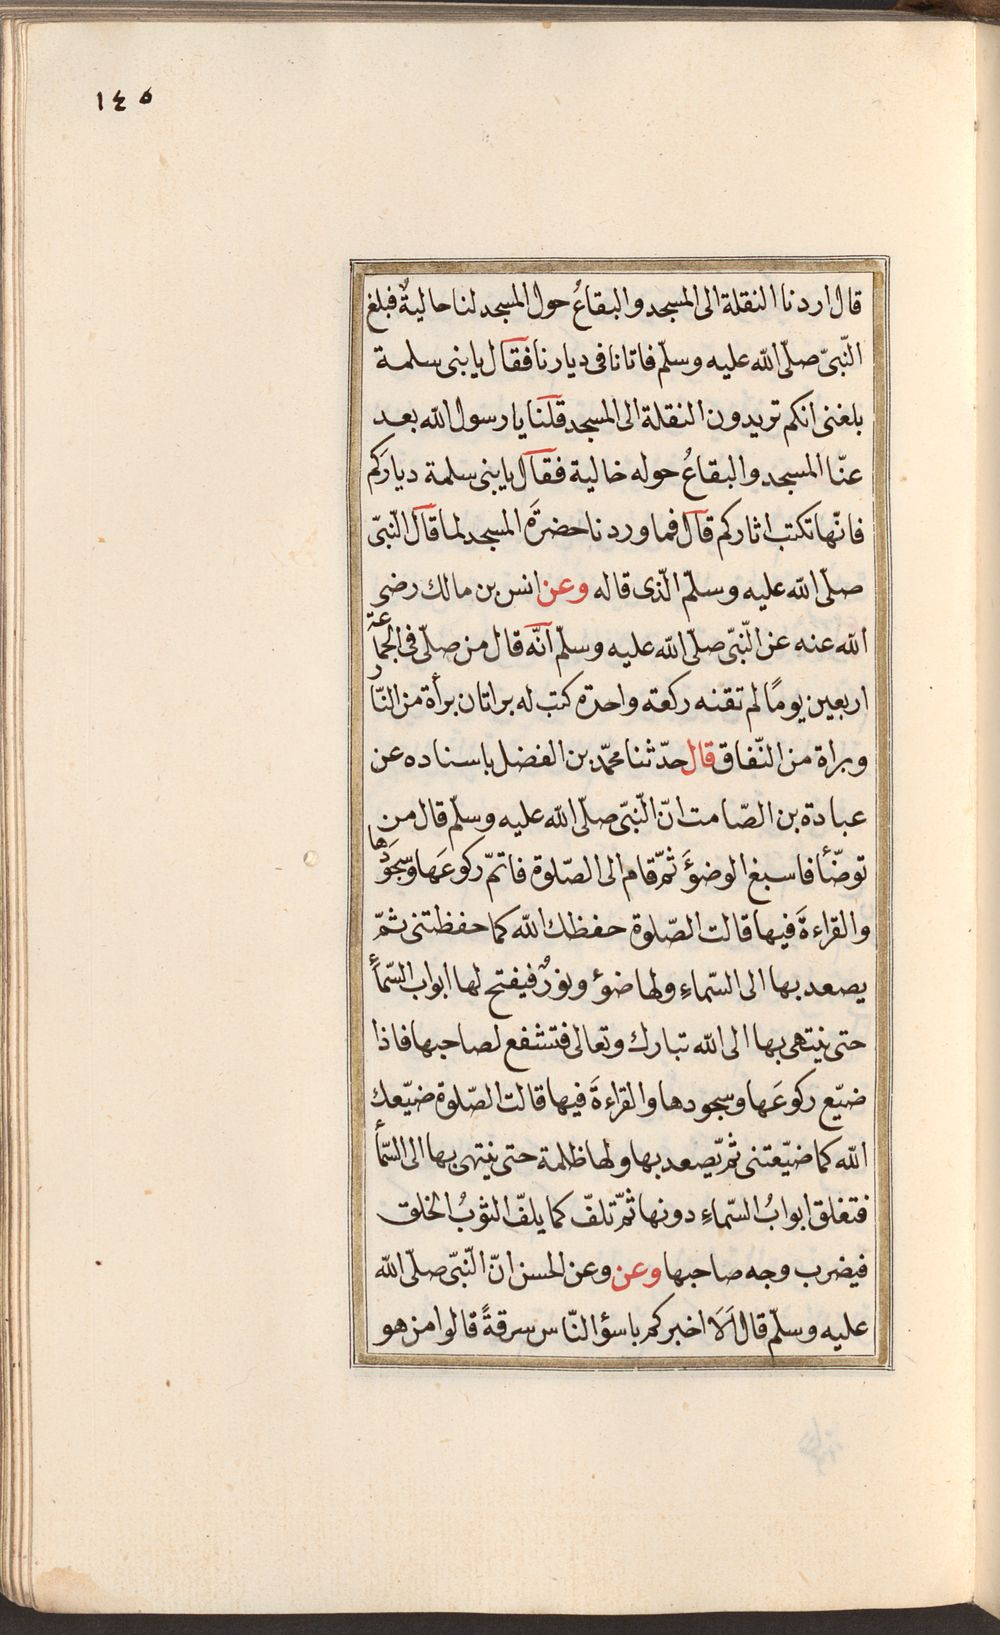 ١٤٥
قال اردنا النقلة الى المسجد والبقاعُ حول المسجد لنا حاليةٌ فبلغ
النّبىّ صلّى الله عليه وسلّم فاتانا فى ديارنا فقال يا بنى سلمة
بلغنى انكم تريدون النقلة الى المسجد قلنا يا رسول الله بعد
عنّا المسجد والبقاعُ حوله خالية فقال يا بنى سلمة دياركم
فانّها تكتب اثاركم قال فما وردنا حضرةَ المسجد لما قال النّبىّ
صلّى الله عليه وسلّم الّذى قاله وعن انس بن مالك رضى
الله عنه عن النّبىّ صلّى الله عليه وسلّم انّه قال من صلّى فى الجماعة
اربعين يومًا لم تفته ركعة واحدة كتب له براتان برأة من النّار
وبراة من النّفاق قال حدّثنا محمّد بن الفضل باسناده عن
عبادة بن الصّامت انّ النّبىّ صلّى الله عليه وسلّم قال من
توضّأ فاسبغ الوضؤَ ثمّ قام الى الصّلوة فاتمّ ركوعَها وسجودَها
والقراءةَ فيها قالت الصّلوة حفظك الله كما حفظتنى ثمّ
يصعد بها الى السّماءِ ولها ضوءٌ ونورٌ فيفتح لها ابواب السّمأ
حتى ينتهى بها الى الله تبارك وتعالى فتشفع لصاحبها فاذا
ضيّع ركوعَها وسجودها والقراءةَ فيها قالت الصّلوة ضيّعك
الله كما ضيّعتنى ثمّ يصعد بها ولها ظلمة حتى ينتهى بها الى السّمأ
فتغلق ابوابُ السّماءِ دونها ثمّ تلفّ كما يلفّ الثوبُ الخلق
فيضرب وجه صاحبها وعن وعن الحسن انّ النّبىّ صلّى الله
عليه وسلّم قال اَلاَ اخبركم باسؤ النّاس سرقةً قالوا من هو